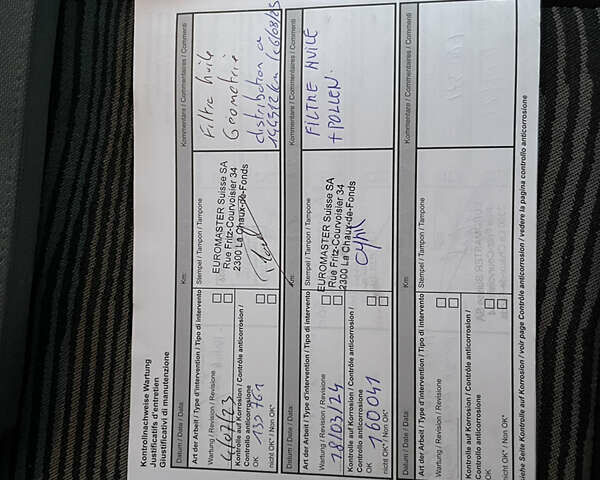 Kontrollnachweise Wartung
Justificatifs d'entretien
Giustificativi di manutenzione
Datum / Date / Data:
Km
Kommentare / Commentaires / Commenti
Art der Arbeit / Type d'intervention / Tipo di intervento
Stempel / Tampon / Tampone
Wartung / Revision / Revisione
/07/23
Kontrolle auf Korrosion /
Contrôle anticorrosion /
Controllo anticorrosione
OK
nicht OK* / Non OK*
EUROMASTER Suisse SA
Rue Fritz-Courvoisier 34
2300 La Chaux-de-Fonds
Filtre huile
Geometrie
distribution a
Datum / Date / Data:
Km
Kommentare / Commentaires / Commenti
Art der Arbeit / Type d'intervention / Tipo di intervento
Stempel / Tampon / Tampone
Wartung / Revision / Revisione
18/03/24
Kontrolle auf Korrosion / Contrôle anticorrosion /
Controllo anticorrosione
OK
160041
nicht OK* / Non OK*
EUROMASTER Suisse SA
Rue Fritz-Courvoisier 34
2300 La Chaux-de-Fonds
FILTRE HUILE
+ POLLEN.
Datum / Date / Data:
Km
Kommentare / Commentaires / Commenti
Art der Arbeit / Type d'intervention / Tipo di intervento
Stempel / Tampon / Tampone
Wartung / Revision / Revisione
Kontrolle auf Korrosion / Contrôle anticorrosion /
Controllo anticorrosione
OK
nicht OK* / Non OK*
Siehe Seite Kontrolle auf Korrosion / voir page Contrôle anticorrosion / vedere la pagina controllo anticorrosione